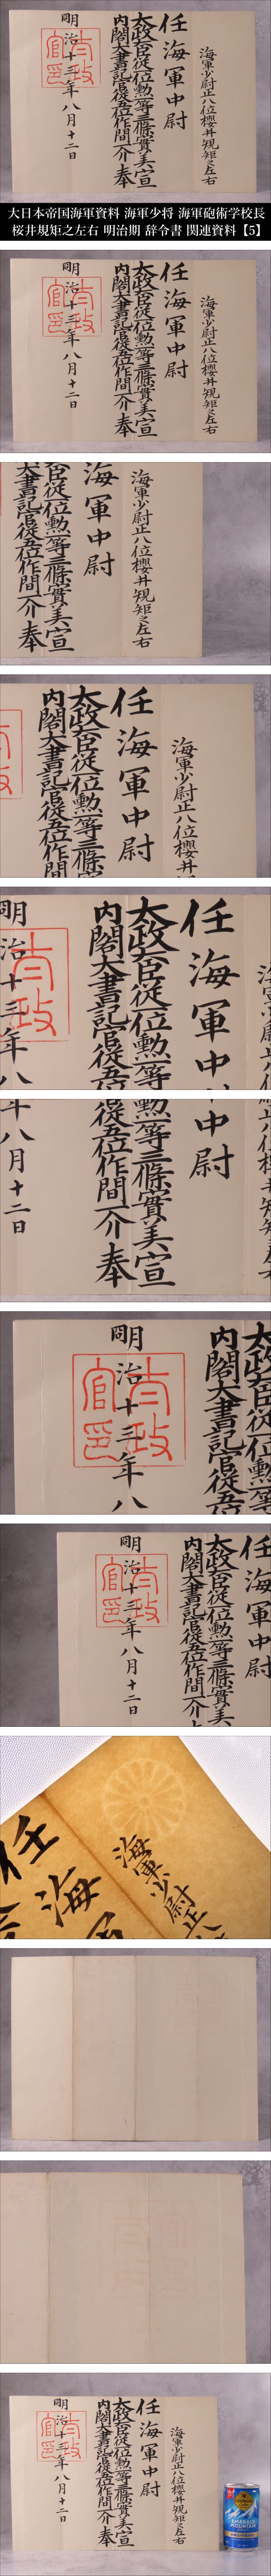 海軍少尉正八位櫻井規矩之左右
任海軍中尉
太政大臣従一位勲一等三條實美宣
内閣大書記官従五位作間一介奉
明治十三年八月十二日
太政官印
大日本帝国海軍資料 海軍少将 海軍砲術学校長
桜井規矩之左右 明治期 辞令書 関連資料【5】
海軍少尉正八位櫻井規矩之左右
任海軍中尉
太政大臣従一位勲一等三條實美宣
内閣大書記官従五位作間一介奉
明治十三年八月十二日
太政官印
海軍少尉正八位櫻井規矩之左右
海軍中尉
臣従一位勲一等三條實美宣
大書記官従五位作間一介奉
海軍少尉正八位櫻井
任海軍中尉
太政大臣従一位勲一等三條
内閣大書記官従五位作間
任海軍中
太政大臣従一位勲一等
内閣大書記官従五位
明治十三年八
太政
中尉
勲一等三條實美宣
従五位作間一介奉
年八月十二日
内閣大書記官従五
明治十三年八
太政官印
任海軍中
太政大臣従一位勲一等三條
内閣大書記官従五位作間
明治十三年八月十二日
太政官印
海軍少尉正
任海
海軍少尉正八位櫻井規矩之左右
任海軍中尉
太政大臣従一位勲一等三條實美宣
内閣大書記官従五位作間一介奉
明治十三年八月十二日
太政官印
EMERALD
MOUNTAIN